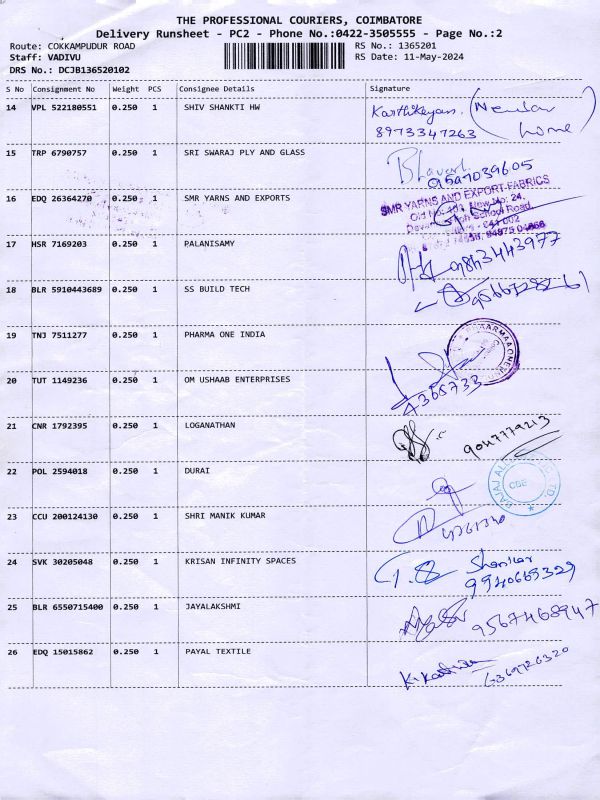 THE PROFESSIONAL COURIERS, COIMBATORE
Delivery Runsheet - PC2 - Phone No.:0422-3505555 - Page No.:2
Route: COKKAMPUDUR ROAD
RS No.: 1365201
Staff: VADIVU
RS Date: 11-May-2024
DRS No.: DCJB136520102
S No Consignment No Weight PCS Consignee Details Signature
14 VPL 522180551 0.250 1 SHIV SHANKTI HW
Karthikeyan. (Nendar
8973347263 home)
15 TRP 6790757 0.250 1 SRI SWARAJ PLY AND GLASS
16 EDQ 26364270 0.250 1 SMR YARNS AND EXPORTS
SMR YARNS AND EXPORT FABRICS
17 HSR 7169203 0.250 1 PALANISAMY
18 BLR 5910443689 0.250 1 SS BUILD TECH
19 TNJ 7511277 0.250 1 PHARMA ONE INDIA
20 TUT 1149236 0.250 1 OM USHAAB ENTERPRISES
4365733
21 CNR 1792395 0.250 1 LOGANATHAN
9047779213
22 POL 2594018 0.250 1 DURAI
CBE
23 CCU 200124130 0.250 1 SHRI MANIK KUMAR
24 SVK 30205048 0.250 1 KRISAN INFINITY SPACES
Shankar
9940665329
25 BLR 6550715400 0.250 1 JAYALAKSHMI
9567468947
26 EDQ 15015862 0.250 1 PAYAL TEXTILE